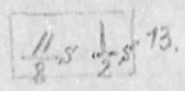 11/8 s 1/2 s 13.